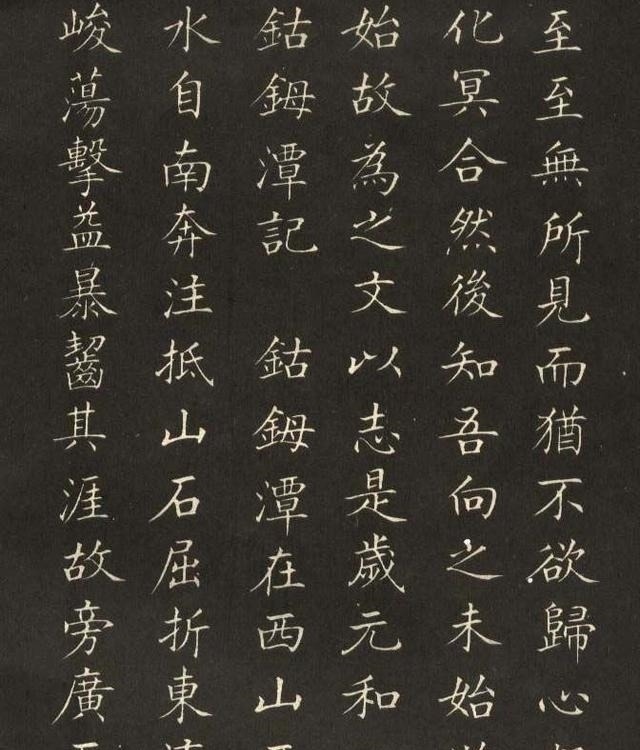 至至無所見而猶不欲歸心
化冥合然後知吾向之未始
始故為之文以志是歲元和
鈷鉧潭記 鈷鉧潭在西山
水自南奔注抵山石屈折東
峻蕩擊益暴齧其涯故旁廣